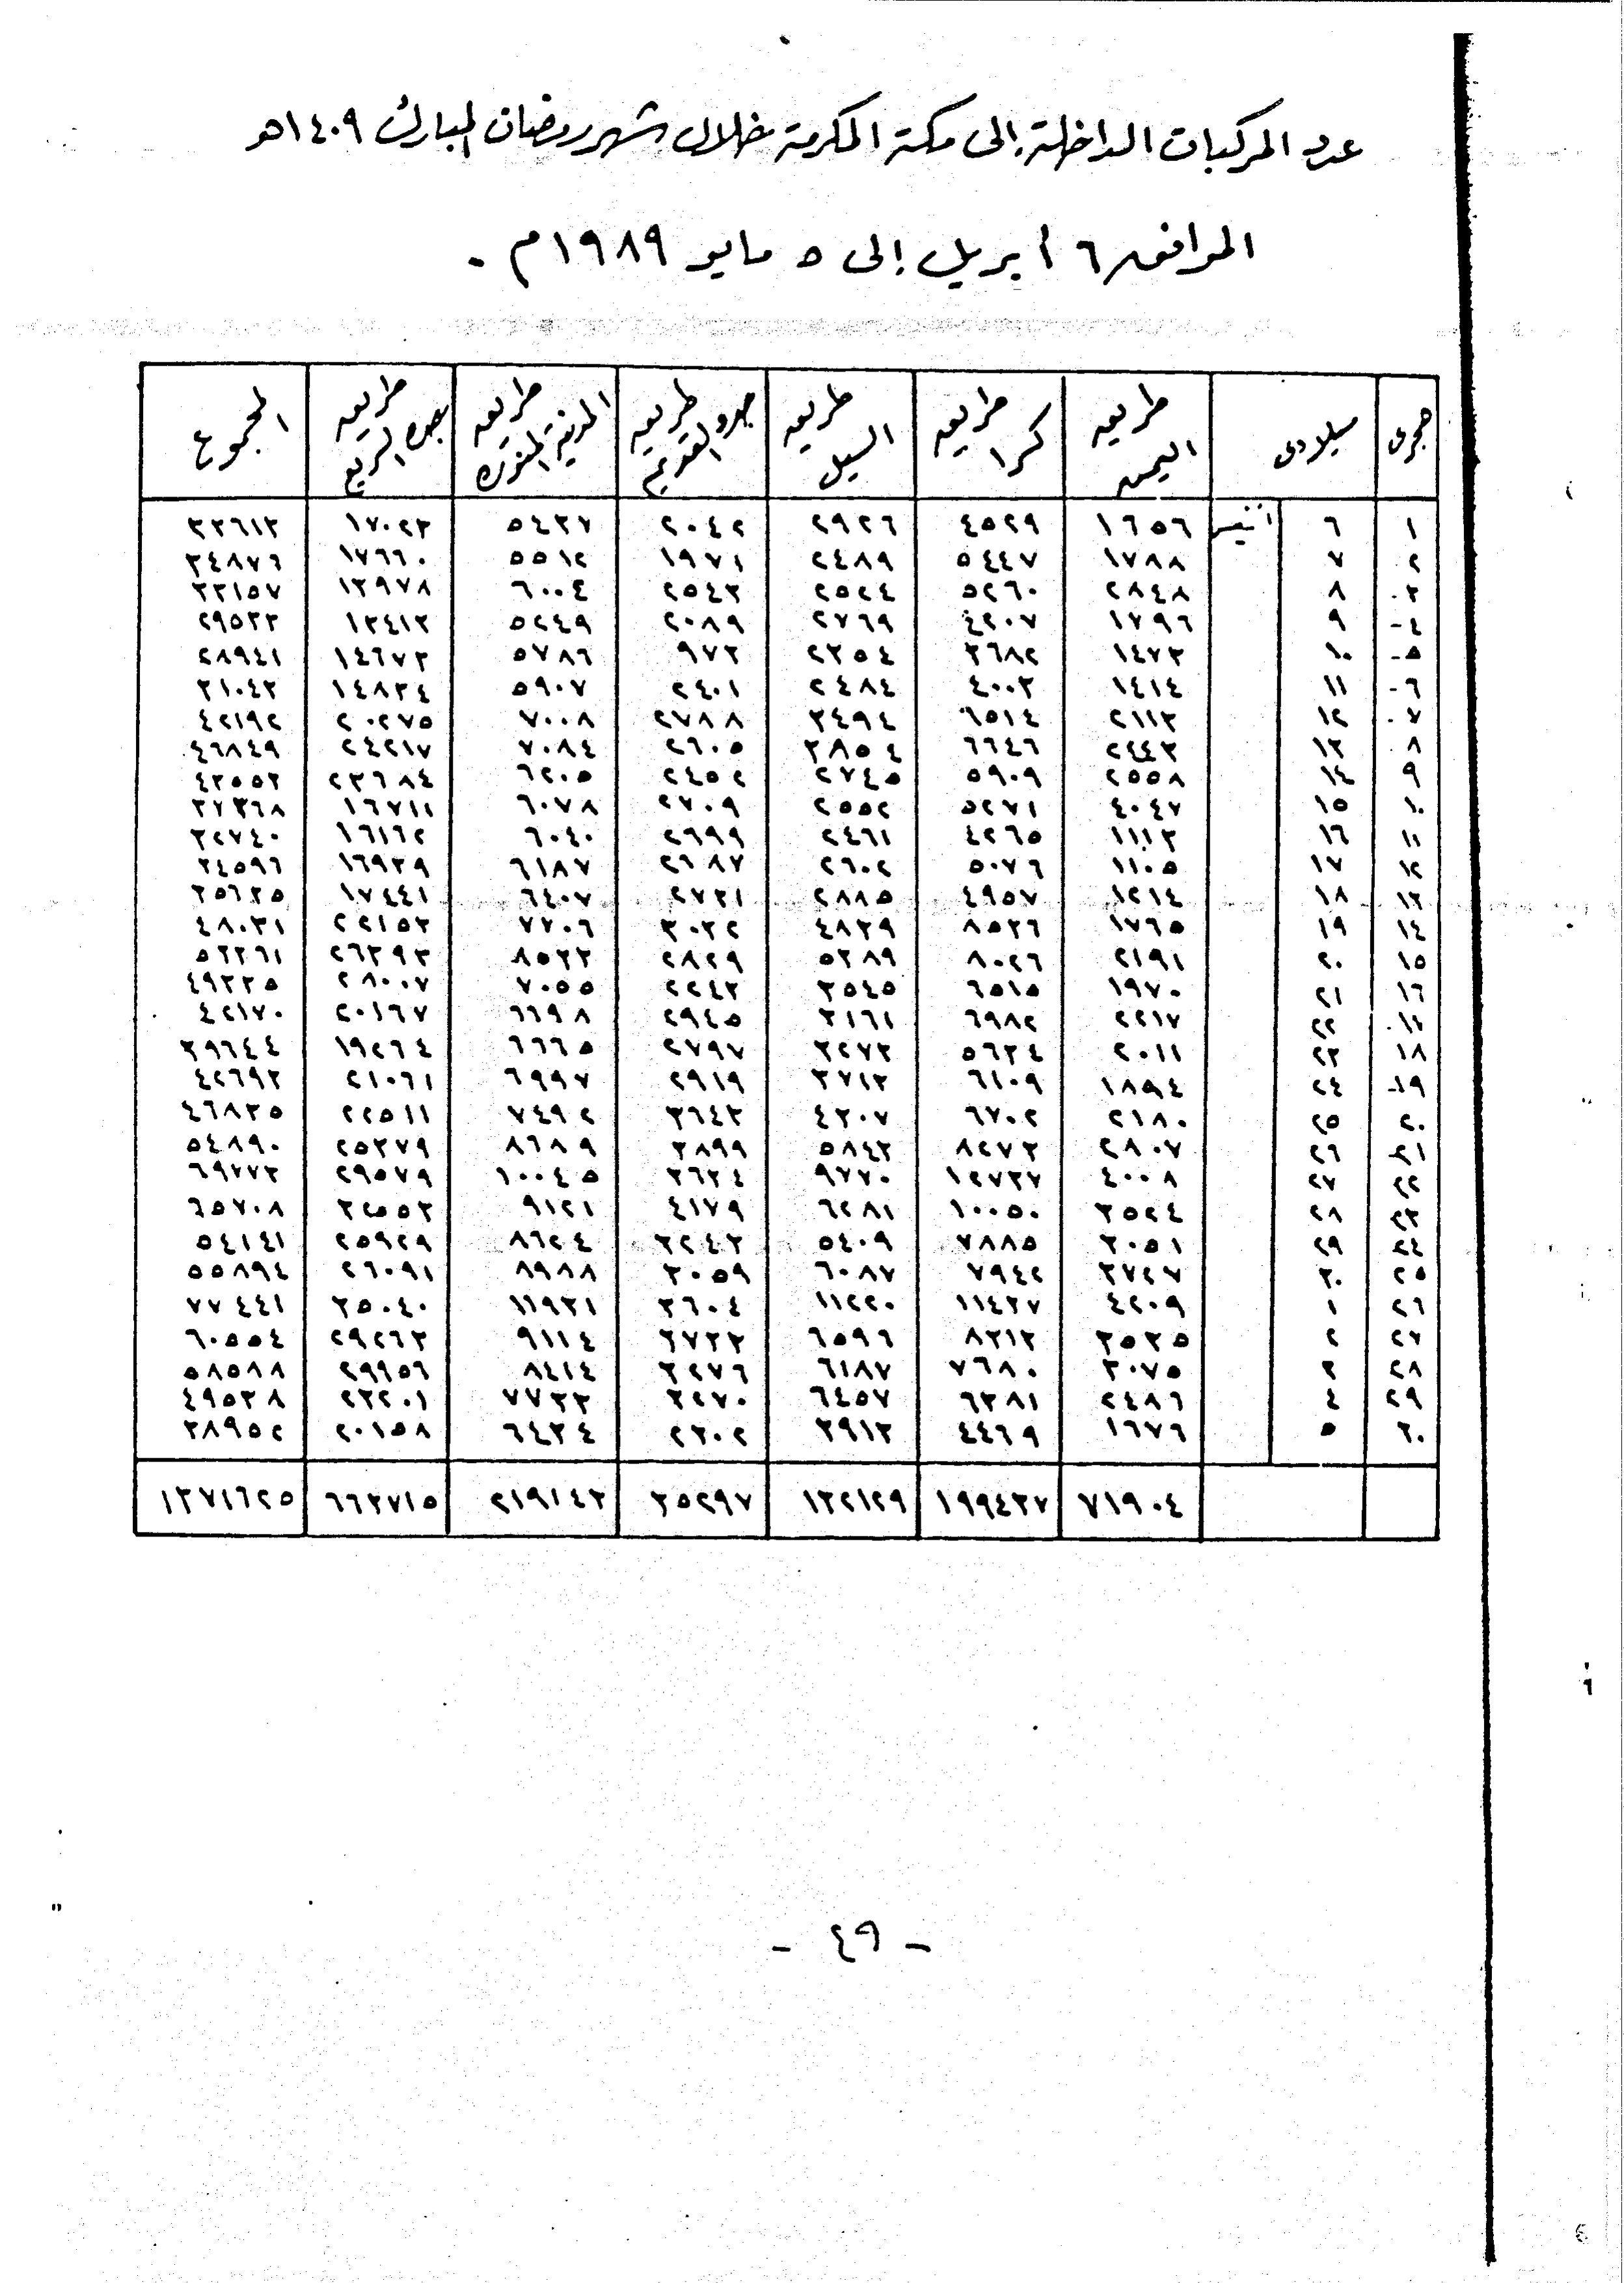 عدد المركبات الداخلة إلى مكة المكرمة خلال شهر رمضان المبارك ١٤٠٩هـ
الموافق ٦ أبريل إلى ٥ مايو ١٩٨٩م .
هجرى ميلادى طريق اليمن طريق كرا طريق السيل طريق جده القديم طريق المدينة المنورة طريق جده السريع المجموع
١ ٦ ١٦٥٦ ٤٥٢٩ ٢٩٢٦ ٢٠٤٢ ٥٤٣٧ ١٧٠٢٣ ٣٣٦١٣
٢ ٧ ١٧٨٨ ٥٤٤٧ ٢٤٨٩ ١٩٧١ ٥٥١٢ ١٧٦٦٠ ٣٤٨٧٦
٣ ٨ ٢٨٤٨ ٥٢٦٠ ٢٥٢٤ ٢٥٤٣ ٦٠٠٤ ١٣٩٧٨ ٣٣١٥٧
٤- ٩ ١٧٩٦ ٤٢٠٧ ٢٧٦٩ ٢٠٨٩ ٥٢٤٩ ١٣٤١٣ ٢٩٥٣٣
٥- ١٠ ١٤٧٣ ٣٦٨٢ ٢٣٥٤ ٩٧٣ ٥٧٨٦ ١٤٦٧٣ ٢٨٩٤١
٦- ١١ ١٤١٤ ٤٠٠٣ ٢٤٨٤ ٢٤٠١ ٥٩٠٧ ١٤٨٣٤ ٣١٠٤٣
٧ ١٢ ٢١١٣ ٦٥١٤ ٣٤٩٤ ٢٧٨٨ ٧٠٠٨ ٢٠٢٧٥ ٤٢١٩٢
٨ ١٣ ٢٤٤٣ ٦٦٤٦ ٣٨٥٤ ٢٦٠٥ ٧٠٨٤ ٢٤٢١٧ ٤٦٨٤٩
٩ ١٤ ٢٥٥٨ ٥٩٠٩ ٢٧٤٥ ٢٤٥٢ ٦٢٠٥ ٢٣٦٨٤ ٤٣٥٥٣
١٠ ١٥ ٤٠٤٧ ٥٢٧١ ٢٥٥٢ ٢٧٠٩ ٦٠٧٨ ١٦٧١١ ٣٧٣٦٨
١١ ١٦ ١١١٣ ٤٢٦٥ ٢٤٦١ ٢٦٩٩ ٦٠٤٠ ١٦١٦٢ ٣٢٧٤٠
١٢ ١٧ ١١٠٥ ٥٠٧٦ ٢٦٠٢ ٢٦٨٧ ٦١٨٧ ١٦٩٣٩ ٣٤٥٩٦
١٣ ١٨ ١٢١٤ ٤٩٥٧ ٢٨٨٥ ٢٧٣١ ٦٤٠٧ ١٧٤٤١ ٣٥٦٣٥
١٤ ١٩ ١٧٦٥ ٨٥٣٦ ٤٨٣٩ ٣٠٣٢ ٧٧٠٦ ٢٢١٥٣ ٤٨٠٣١
١٥ ٢٠ ٢١٩١ ٨٠٢٦ ٥٣٨٩ ٢٨٢٩ ٨٥٣٣ ٢٦٣٩٣ ٥٣٣٦١
١٦ ٢١ ١٩٧٠ ٦٥١٥ ٣٥٤٥ ٢٢٤٣ ٧٠٥٥ ٢٨٠٠٧ ٤٩٣٣٥
١٧ ٢٢ ٢٢١٧ ٦٩٨٢ ٣١٦١ ٢٩٤٥ ٦٦٩٨ ٢٠١٦٧ ٤٢١٧٠
١٨ ٢٣ ٢٠١١ ٥٦٣٤ ٣٢٧٣ ٢٧٩٧ ٦٦٦٥ ١٩٢٦٤ ٣٩٦٤٤
١٩- ٢٤ ١٨٩٤ ٦١٠٩ ٣٧١٣ ٢٩١٩ ٦٩٩٧ ٢١٠٦١ ٤٢٦٩٣
٢٠ ٢٥ ٢١٨٠ ٦٧٠٢ ٤٣٠٧ ٣٦٤٣ ٧٤٩٢ ٢٢٥١١ ٤٦٨٣٥
٢١ ٢٦ ٢٨٠٧ ٨٢٧٣ ٥٨٤٣ ٣٨٩٩ ٨٦٨٩ ٢٥٣٧٩ ٥٤٨٩٠
٢٢ ٢٧ ٤٠٠٨ ١٢٧٣٧ ٩٧٧٠ ٣٦٣٤ ١٠٠٤٥ ٢٩٥٧٩ ٦٩٧٧٣
٢٣ ٢٨ ٣٥٢٤ ١٠٠٥٠ ٦٢٨١ ٤١٧٩ ٩١٢١ ٣٢٥٥٣ ٦٥٧٠٨
٢٤ ٢٩ ٣٠٥١ ٧٨٨٥ ٥٤٠٩ ٣٢٤٣ ٨٦٢٤ ٢٥٩٢٩ ٥٤١٤١
٢٥ ٣٠ ٣٧٢٧ ٧٩٤٢ ٦٠٨٧ ٣٠٥٩ ٨٩٨٨ ٢٦٠٩١ ٥٥٨٩٤
٢٦ ١ ٤٢٠٩ ١١٤٣٧ ١١٢٢٠ ٣٦٠٤ ١١٩٣١ ٣٥٠٤٠ ٧٧٤٤١
٢٧ ٢ ٣٥٣٥ ٨٣١٣ ٦٥٩٦ ٣٧٣٣ ٩١١٤ ٢٩٢٦٣ ٦٠٥٥٤
٢٨ ٣ ٣٠٧٥ ٧٦٨٠ ٦١٨٧ ٣٢٧٦ ٨٤١٤ ٢٩٩٥٦ ٥٨٥٨٨
٢٩ ٤ ٢٤٨٦ ٦٣٨١ ٦٤٥٧ ٣٢٧٠ ٧٧٣٣ ٢٣٢٠١ ٤٩٥٣٨
٣٠ ٥ ١٦٧٦ ٤٤٦٩ ٣٩١٣ ٢٣٠٢ ٦٤�٤ ٢٠١٥٨ ٣٨٩٥٢
٧١٩٠٤ ١٩٩٤٣٧ ١٣٢١٢٩ ٣٥٢٩٧ ٢١٩١٤٣ ٦٦٣٧١٥ ١٣٧١٦٢٥
- ٤٩ -